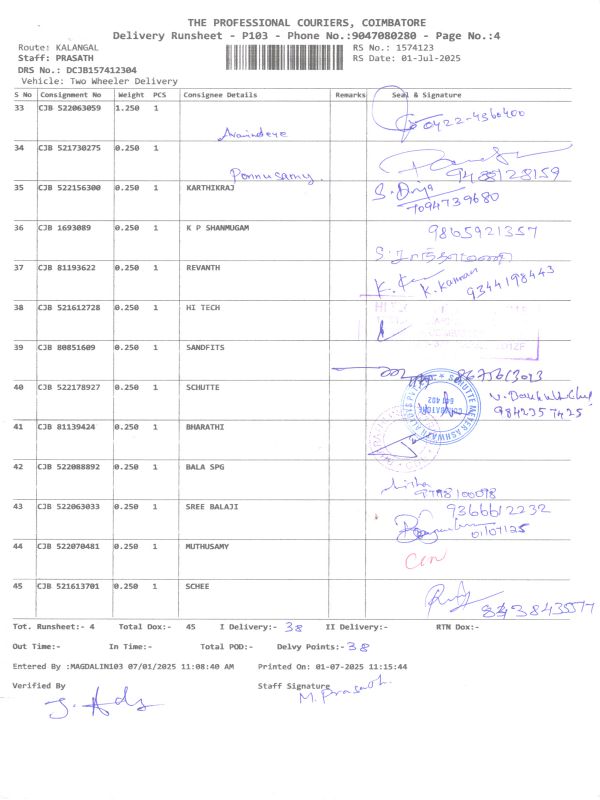 THE PROFESSIONAL COURIERS, COIMBATORE
Delivery Runsheet - P103 - Phone No.:9047080280 - Page No.:4
Route: KALANGAL RS No.: 1574123
Staff: PRASATH RS Date: 01-Jul-2025
DRS No.: DCJB157412304
Vehicle: Two Wheeler Delivery
S No Consignment No Weight PCS Consignee Details Remarks Seal & Signature
33 CJB 522063059 1.250 1 0422-4360400
34 CJB 521730275 0.250 1
Ponnusamy. 9488128159
35 CJB 522156300 0.250 1 KARTHIKRAJ
7094739680
36 CJB 1693089 0.250 1 K P SHANMUGAM 9865921357
37 CJB 81193622 0.250 1 REVANTH K. Kannan 9344198443
38 CJB 521612728 0.250 1 HI TECH
39 CJB 80851609 0.250 1 SANDFITS
40 CJB 522178927 0.250 1 SCHUTTE
9842357425
41 CJB 81139424 0.250 1 BHARATHI
42 CJB 522088892 0.250 1 BALA SPG
43 CJB 522063033 0.250 1 SREE BALAJI 9366612232
01/07/25
44 CJB 522070481 0.250 1 MUTHUSAMY
45 CJB 521613701 0.250 1 SCHEE
Tot. Runsheet:- 4 Total Dox:- 45 I Delivery:- 38 II Delivery:- RTN Dox:-
Out Time:- In Time:- Total POD:- Delvy Points:- 38
Entered By :MAGDALIN103 07/01/2025 11:08:40 AM Printed On: 01-07-2025 11:15:44
Verified By Staff Signature
M. Prasath